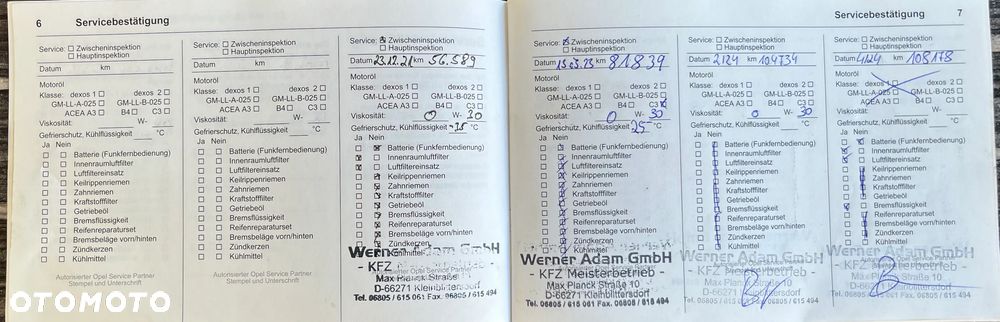 6 Servicebestätigung
Service: Zwischeninspektion
Hauptinspektion
Datum km
Motoröl
Klasse: dexos 1 dexos 2
GM-LL-A-025 GM-LL-B-025
ACEA A3 B4 C3
Viskosität: W-
Gefrierschutz, Kühlflüssigkeit °C
Ja Nein
Batterie (Funkfernbedienung)
Innenraumluftfilter
Luftfiltereinsatz
Keilrippenriemen
Zahnriemen
Kraftstofffilter
Getriebeöl
Bremsflüssigkeit
Reifenreparaturset
Bremsbeläge vorn/hinten
Zündkerzen
Kühlmittel
Autorisierter Opel Service Partner
Stempel und Unterschrift
Service: Zwischeninspektion
Hauptinspektion
Datum km
Motoröl
Klasse: dexos 1 dexos 2
GM-LL-A-025 GM-LL-B-025
ACEA A3 B4 C3
Viskosität: W-
Gefrierschutz, Kühlflüssigkeit °C
Ja Nein
Batterie (Funkfernbedienung)
Innenraumluftfilter
Luftfiltereinsatz
Keilrippenriemen
Zahnriemen
Kraftstofffilter
Getriebeöl
Bremsflüssigkeit
Reifenreparaturset
Bremsbeläge vorn/hinten
Zündkerzen
Kühlmittel
Autorisierter Opel Service Partner
Stempel und Unterschrift
Service: Zwischeninspektion
Hauptinspektion
Datum 23.12.21 km 56.589
Motoröl
Klasse: dexos 1 dexos 2
GM-LL-A-025 GM-LL-B-025
ACEA A3 B4 C3
Viskosität: 0 W- 30
Gefrierschutz, Kühlflüssigkeit °C
Ja Nein
Batterie (Funkfernbedienung)
Innenraumluftfilter
Luftfiltereinsatz
Keilrippenriemen
Zahnriemen
Kraftstofffilter
Getriebeöl
Bremsflüssigkeit
Reifenreparaturset
Bremsbeläge vorn/hinten
Zündkerzen
Kühlmittel
Werner Adam GmbH
- KFZ
Max Planck Straße
D-66271 Kleinblittersdorf
Tel. 06805 / 615 061 Fax. 06805 / 615 494
Servicebestätigung 7
Service: Zwischeninspektion
Hauptinspektion
Datum 15.03.23 km 81839
Motoröl
Klasse: dexos 1 dexos 2
GM-LL-A-025 GM-LL-B-025
ACEA A3 B4 C3
Viskosität: 0 W- 30
Gefrierschutz, Kühlflüssigkeit 25 °C
Ja Nein
Batterie (Funkfernbedienung)
Innenraumluftfilter
Luftfiltereinsatz
Keilrippenriemen
Zahnriemen
Kraftstofffilter
Getriebeöl
Bremsflüssigkeit
Reifenreparaturset
Bremsbeläge vorn/hinten
Zündkerzen
Kühlmittel
Werner Adam GmbH
- KFZ Meisterbetrieb -
Max Planck Straße 10
D-66271 Kleinblittersdorf
Service: Zwischeninspektion
Hauptinspektion
Datum 2124 km 104734
Motoröl
Klasse: dexos 1 dexos 2
GM-LL-A-025 GM-LL-B-025
ACEA A3 B4 C3
Viskosität: 0 W- 30
Gefrierschutz, Kühlflüssigkeit °C
Ja Nein
Batterie (Funkfernbedienung)
Innenraumluftfilter
Luftfiltereinsatz
Keilrippenriemen
Zahnriemen
Kraftstofffilter
Getriebeöl
Bremsflüssigkeit
Reifenreparaturset
Bremsbeläge vorn/hinten
Zündkerzen
Kühlmittel
Service: Zwischeninspektion
Hauptinspektion
Datum 4124 km 108178
Motoröl
Klasse: dexos 1 dexos 2
GM-LL-A-025 GM-LL-B-025
ACEA A3 B4 C3
Viskosität: W-
Gefrierschutz, Kühlflüssigkeit °C
Ja Nein
Batterie (Funkfernbedienung)
Innenraumluftfilter
Luftfiltereinsatz
Keilrippenriemen
Zahnriemen
Kraftstofffilter
Getriebeöl
Bremsflüssigkeit
Reifenreparaturset
Bremsbeläge vorn/hinten
Zündkerzen
Kühlmittel
Werner Adam GmbH
- KFZ Meisterbetrieb -
Max Planck Straße 10
D-66271 Kleinblittersdorf
OTOMOTO